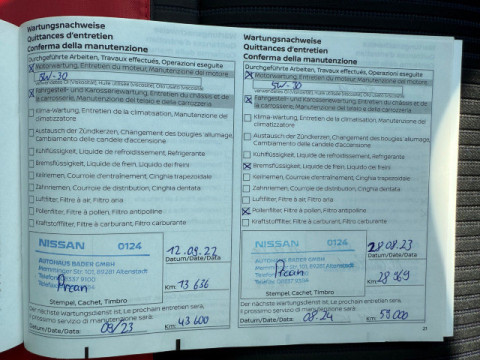 Wartungsnachweise
Quittances d'entretien
Conferma della manutenzione
Durchgeführte Arbeiten, Travaux effectués, Operazioni eseguite
Motorwartung, Entretien du moteur, Manutenzione del motore
5W-30
Fahrgestell- und Karosseriewartung, Entretien du châssis et de
la carrosserie, Manutenzione del telaio e della carrozzeria
Klima-Wartung, Entretien de la climatisation, Manutenzione del
climatizzatore
Austausch der Zündkerzen, Changement des bougies d'allumage,
Cambiamento delle candele d'accensione
Kühlflüssigkeit, Liquide de refroidissement, Refrigerante
Bremsflüssigkeit, Liquide de frein, Liquido dei freni
Keilriemen, Courroie d'entraînement, Cinghia trapezoidale
Zahnriemen, Courroie de distribution, Cinghia dentata
Luftfilter, Filtre à air, Filtro aria
Pollenfilter, Filtre à pollen, Filtro antipolline
Kraftstofffilter, Filtre à carburant, Filtro carburante
NISSAN 0124
AUTOHAUS BADER GMBH
Memminger Str. 101, 89281 Altenstadt
Stempel, Cachet, Timbro
12.09.22
Datum/Date/Data:
Km: 13 636
Der nächste Wartungsdienst ist, Le prochain entretien sera,
Il prossimo servizio di manutenzione sarà:
Datum/Date/Data: 09/23 Km: 43 600
Wartungsnachweise
Quittances d'entretien
Conferma della manutenzione
Durchgeführte Arbeiten, Travaux effectués, Operazioni eseguite
Motorwartung, Entretien du moteur, Manutenzione del motore
5W-30
Fahrgestell- und Karosseriewartung, Entretien du châssis et de
la carrosserie, Manutenzione del telaio e della carrozzeria
Klima-Wartung, Entretien de la climatisation, Manutenzione del
climatizzatore
Austausch der Zündkerzen, Changement des bougies d'allumage,
Cambiamento delle candele d'accensione
Kühlflüssigkeit, Liquide de refroidissement, Refrigerante
Bremsflüssigkeit, Liquide de frein, Liquido dei freni
Keilriemen, Courroie d'entraînement, Cinghia trapezoidale
Zahnriemen, Courroie de distribution, Cinghia dentata
Luftfilter, Filtre à air, Filtro aria
Pollenfilter, Filtre à pollen, Filtro antipolline
Kraftstofffilter, Filtre à carburant, Filtro carburante
NISSAN 0124
AUTOHAUS BADER GMBH
Memminger Str. 101, 89281 Altenstadt
Stempel, Cachet, Timbro
28.08.23
Datum/Date/Data:
Km: 28 969
Der nächste Wartungsdienst ist, Le prochain entretien sera,
Il prossimo servizio di manutenzione sarà:
Datum/Date/Data: 08.24 Km: 59 000
21